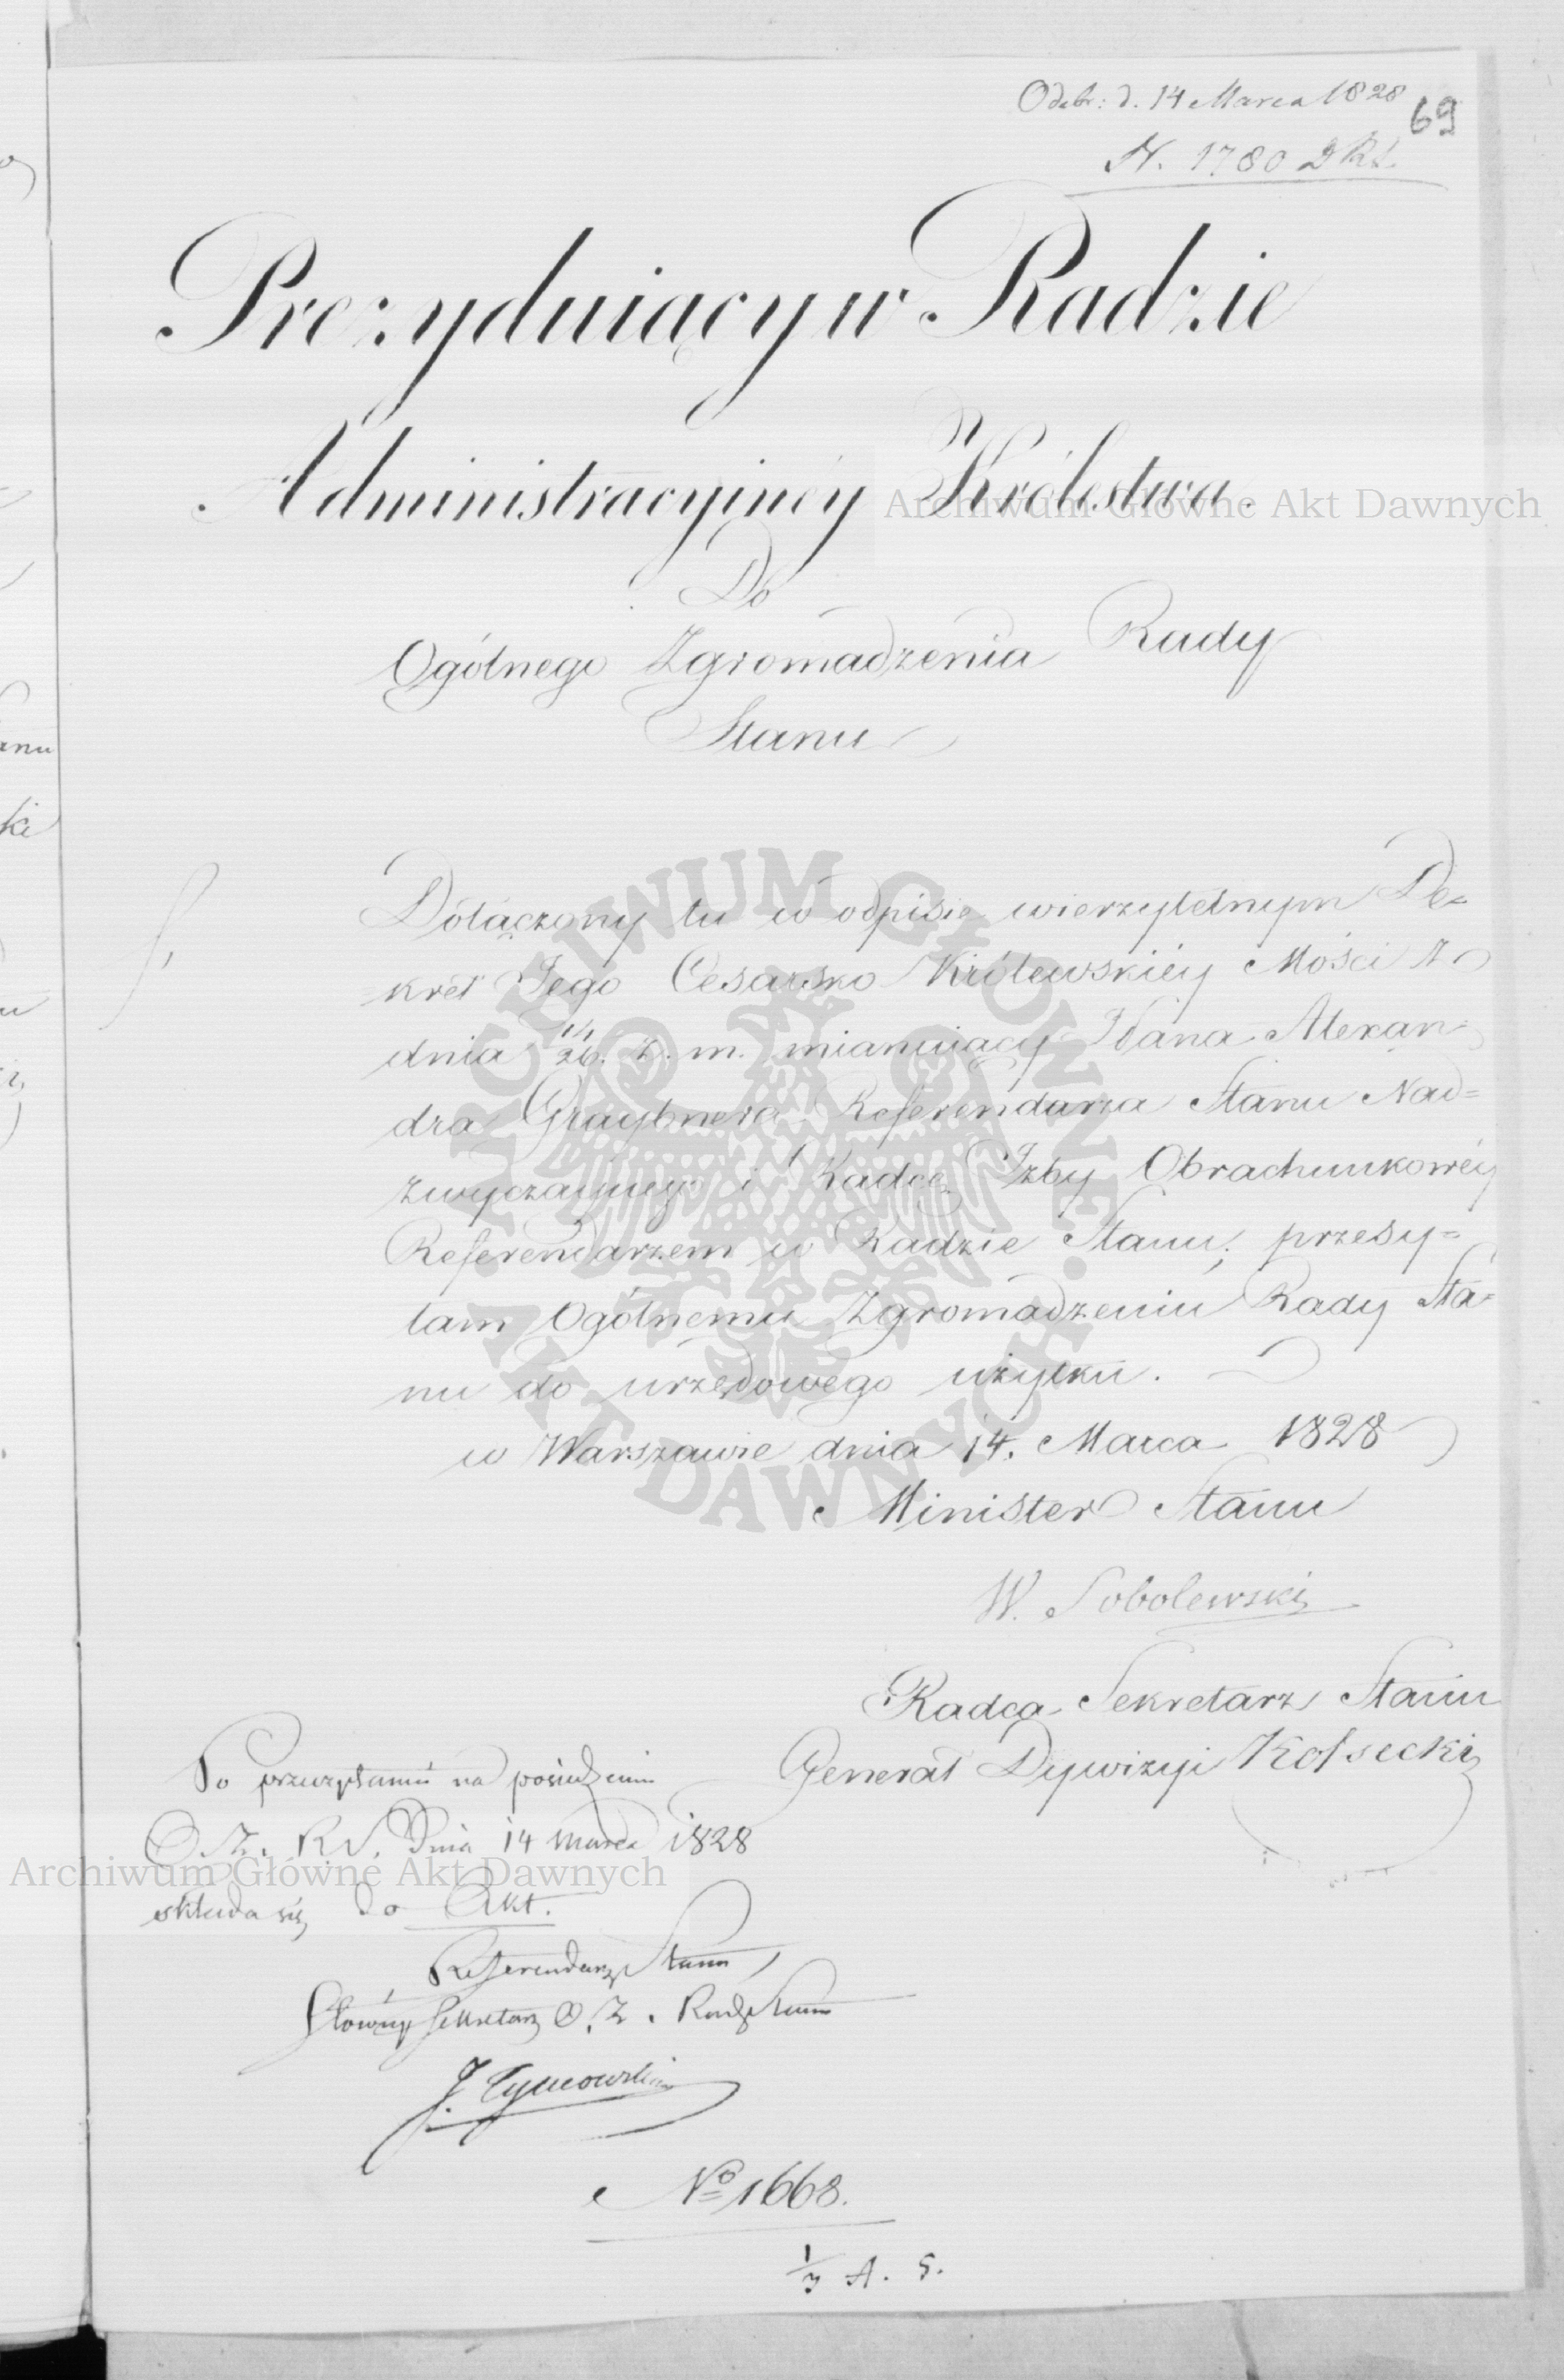 Odebr: d. 14 Marca 1828
69
N. 1780
Prezyduiący w Radzie
Administracyinéy Królestwa.
Do
Ogólnego Zgromadzenia Rady
Stanu
Dołączony tu w odpisie wierzytelnym De=
kret Jego Cesarsko Królewskiéy Mości z
dnia 14/26. z. m. mianuiący Pana Alexan=
dra Graybnera Referendarza Stanu Nad=
zwyczaynego i Radcę Izby Obrachunkowéy
Referendarzem w Radzie Stanu; przesy=
łam Ogólnemu Zgromadzeniu Rady Sta=
nu do urzędowego użytku.
w Warszawie dnia 14. Marca 1828
Minister Stanu
W. Sobolewski
Radca Sekretarz Stanu
Generał Dywizyi Kossecki
Po przeczytaniu na posiedzeniu
O. Z. R. S. Dnia 14 Marca 1828
składa się do Akt.
Referendarz Stanu
Główny Sekretarz O. Z. Rady Stanu
J. Tymowski
No 1668.
A. 5.
Archiwum Główne Akt Dawnych
ARCHIWUM GŁÓWNE
· AKT DAWNYCH ·
Archiwum Główne Akt Dawnych